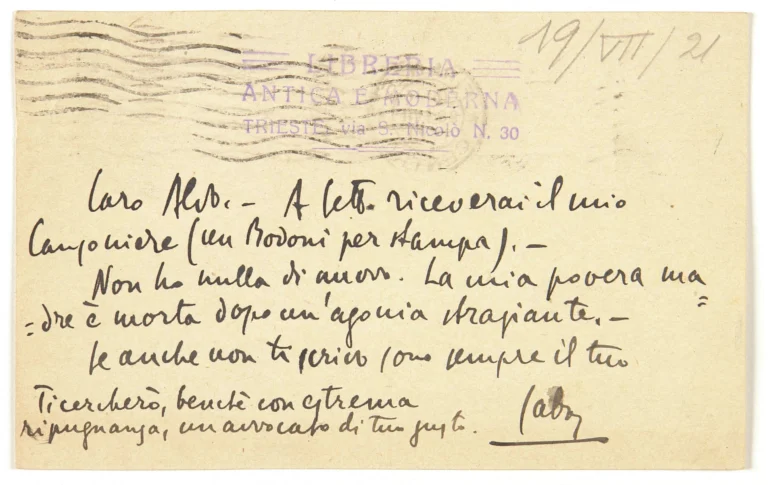 19/VII/21
LIBRERIA
ANTICA E MODERNA
TRIESTE, via S. Nicolò N. 30
Caro Aldo. – A Sett. riceverai il mio
Canzoniere (un Bodoni per stampa). –
Non ho nulla di nuovo. La mia povera ma
=dre è morta dopo un'agonia straziante. –
Se anche non ti scrivo sono sempre il tuo
Saba
Ti cercherò, benchè con estrema
ripugnanza, un avvocato di tuo gusto.